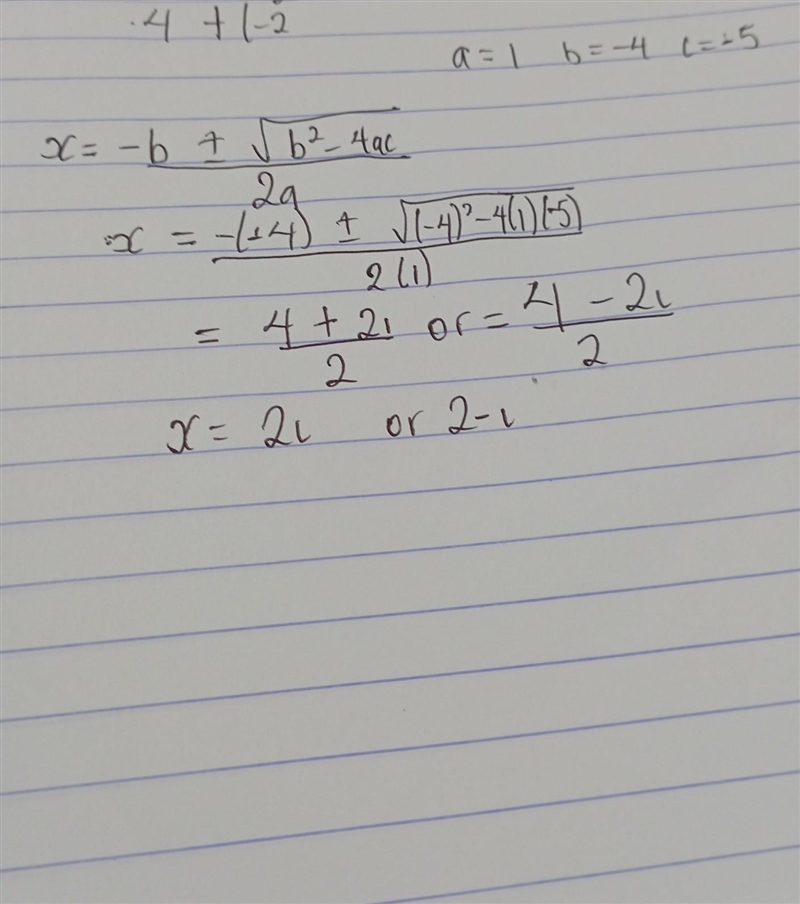 ·4 + (-2
a = 1 b = -4 c = -5
x = -b ± √b² - 4ac / 2a
x = -(-4) ± √(-4)² - 4(1)(-5) / 2(1)
= 4 + 2i / 2 or = 4 - 2i / 2
x = 2i or 2-i